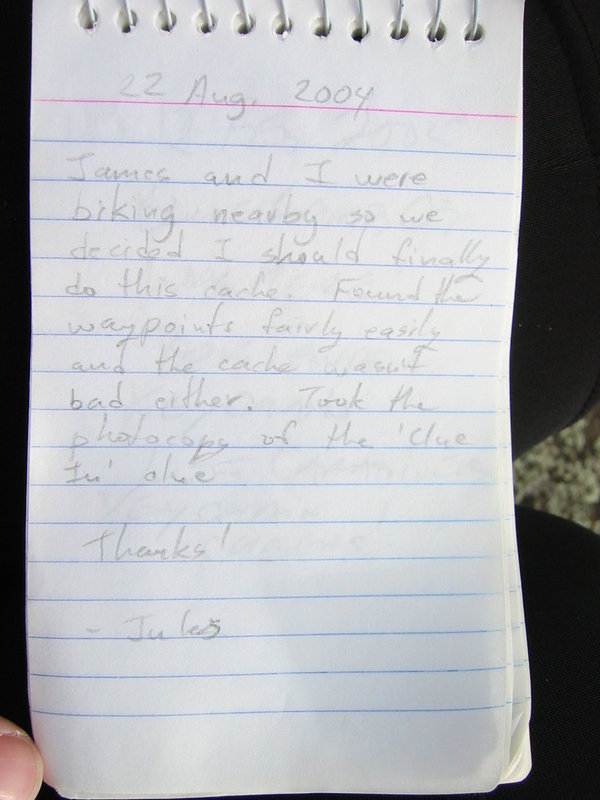 22 Aug. 2004
James and I were
biking nearby so we
decided I should finally
do this cache. Found the
waypoints fairly easily
and the cache wasn't
bad either. Took the
photocopy of the 'Clue
In' clue
Thanks!
- Jules